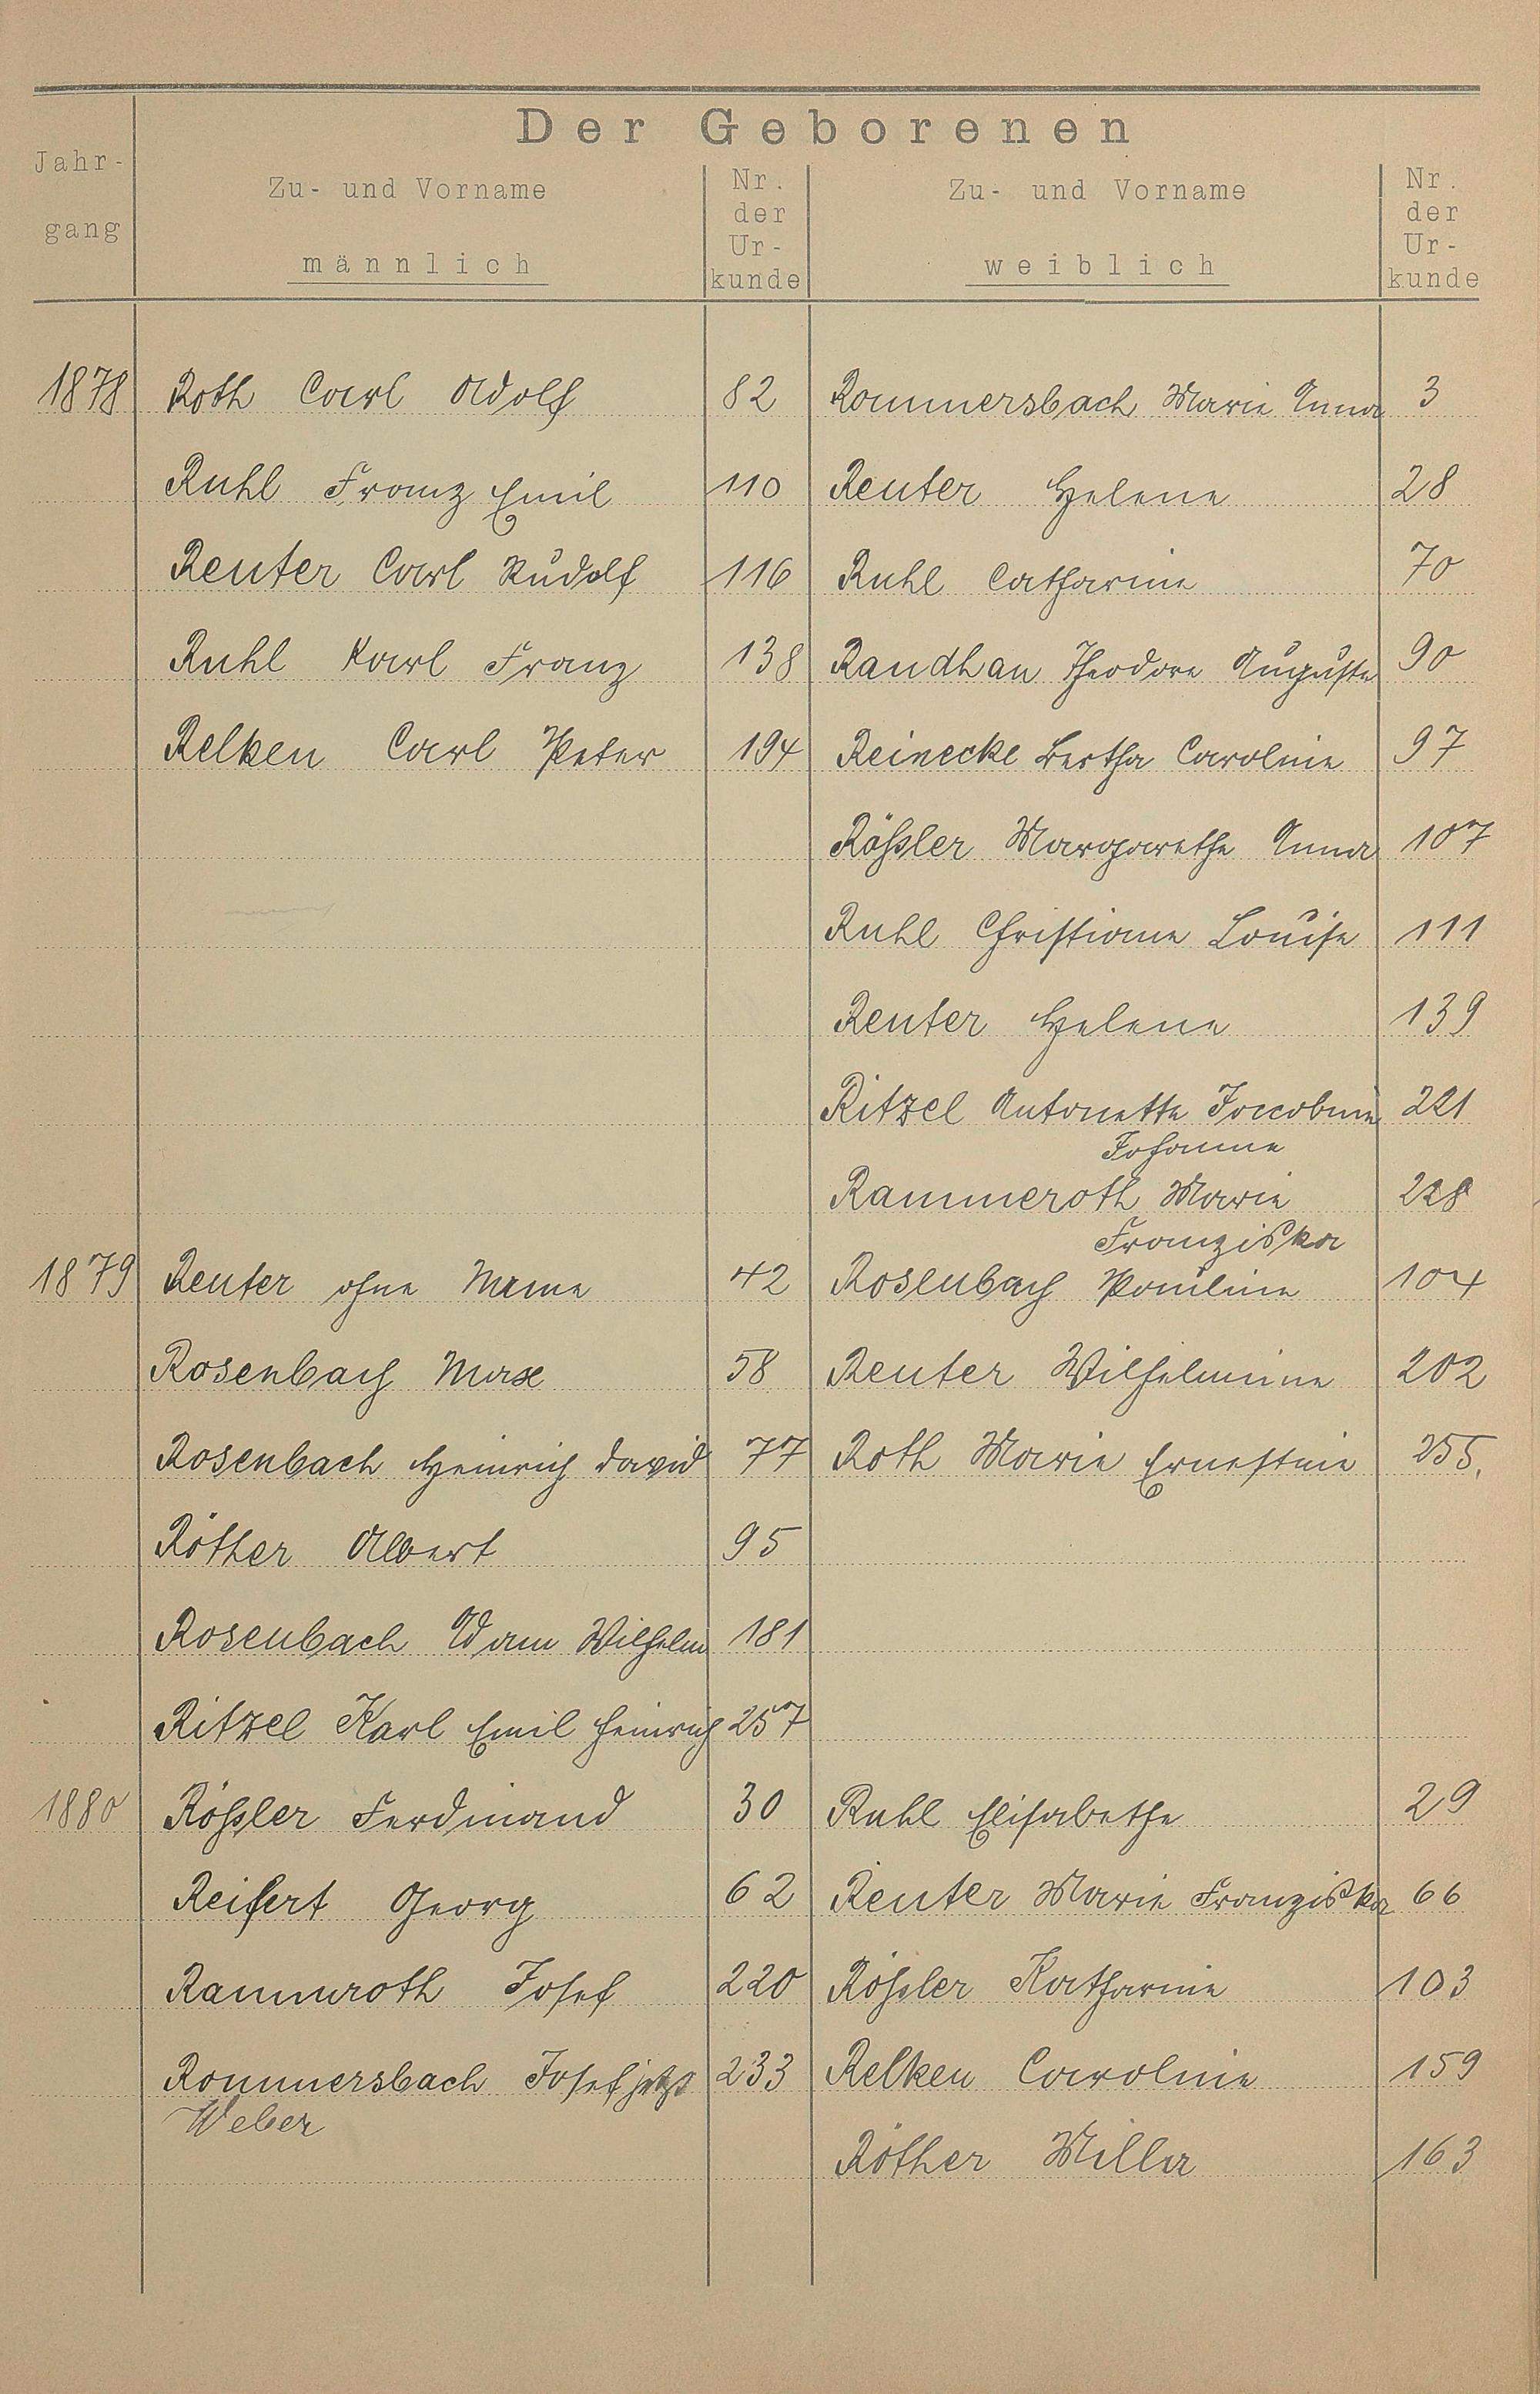 Der Geborenen
Jahr-gang
Zu- und Vorname männlich
Nr. der Ur-kunde
Zu- und Vorname weiblich
Nr. der Ur-kunde
1878 Roth Carl Adolf 82 Rommersbach Marie Anna 3
Ruhl Franz Emil 110 Reuter Helene 28
Reuter Carl Rudolf 116 Ruhl Catharine 70
Ruhl Karl Franz 138 Randhan Theodore Auguste 90
Relken Carl Peter 194 Reinecke Bertha Caroline 97
Rößler Margarethe Anna 107
Ruhl Christiane Louise 111
Reuter Helene 139
Ritzel Antonette Jacobine 221
Johanne
Rammeroth Marie 228
Franziska
1879 Reuter ohne Name 42 Rosenbach Pauline 104
Rosenbach Max 58 Reuter Wilhelmine 202
Rosenbach Heinrich David 77 Roth Marie Ernestine 255.
Röther Albert 95
Rosenbach Adam Wilhelm 181
Ritzel Karl Emil Heinrich 257
1880 Rößler Ferdinand 30 Ruhl Elisabethe 29
Reifert Georg 62 Reuter Marie Franziska 66
Rammroth Josef 220 Rößler Katharine 103
Rommersbach Josef jetzt 233 Relken Caroline 159
Weber
Röther Milla 163